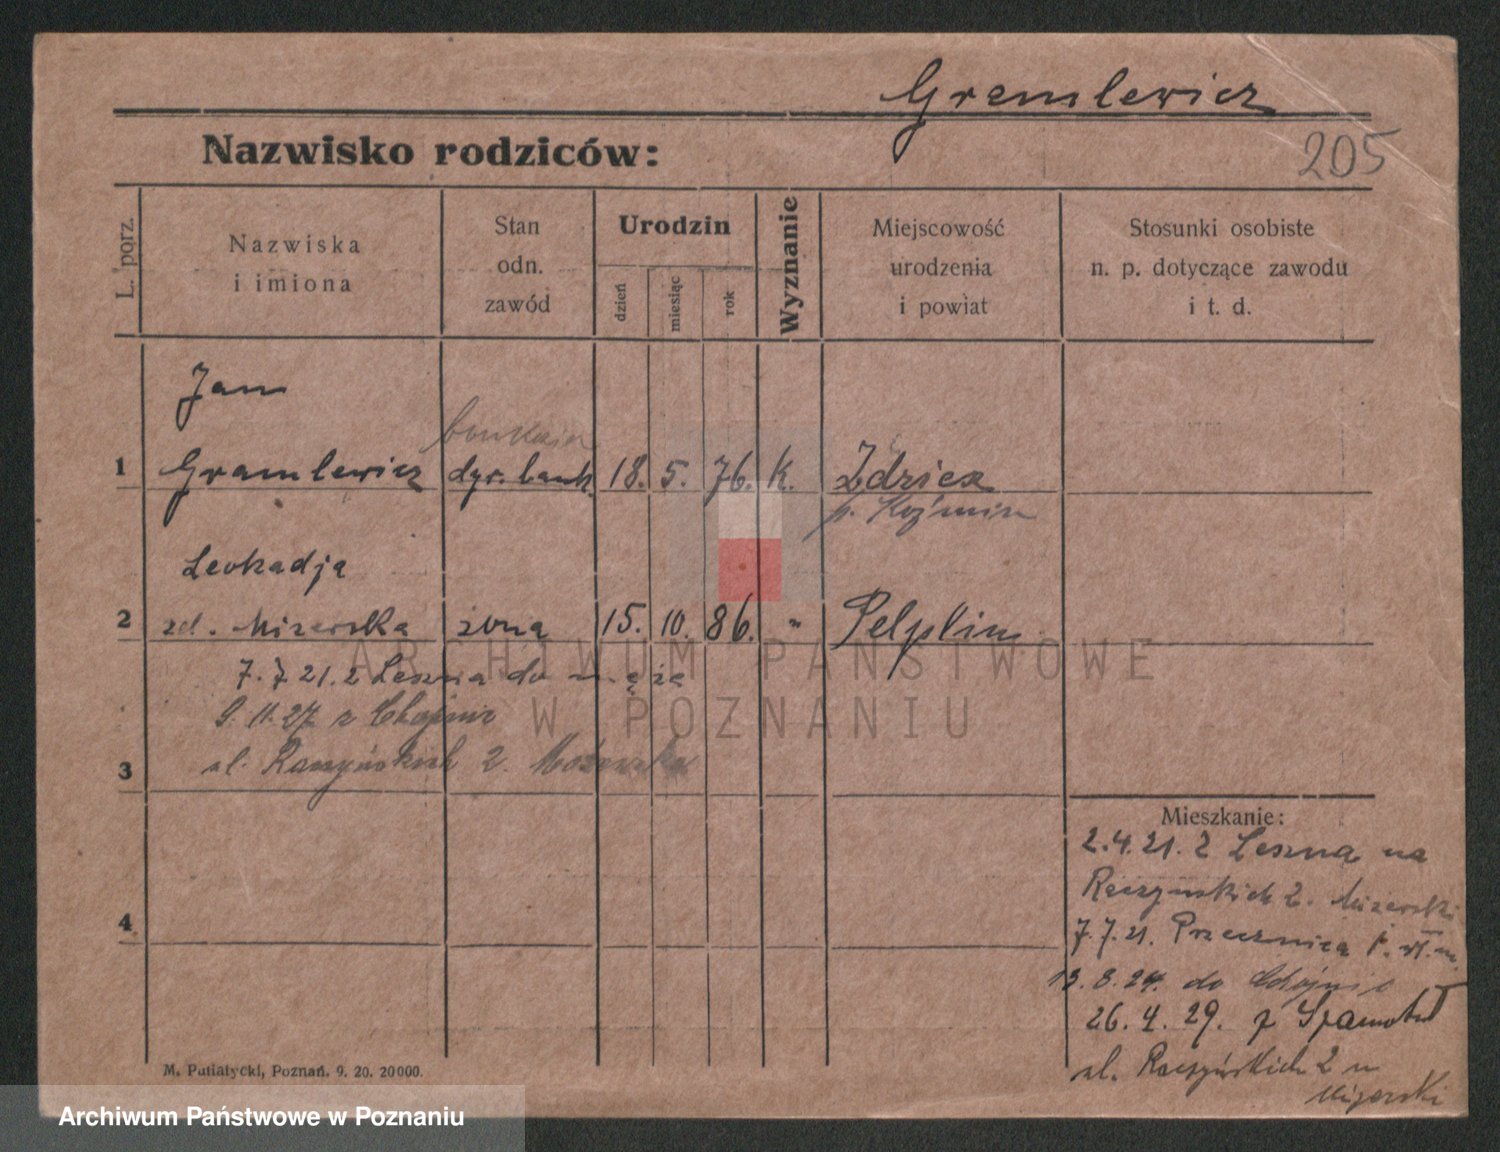 Gramlewicz
205
Nazwisko rodziców:
L. porz.
Nazwiska
i imiona
Stan
odn.
zawód
Urodzin
dzień
miesiąc
rok
Wyznanie
Miejscowość
urodzenia
i powiat
Stosunki osobiste
n. p. dotyczące zawodu
i t. d.
Jan
1 Gramlewicz dyr. bank. 18. 5. 76. k. Zdziesz
p. Koźmin
Leokadja
2 zd. Mizerska żona 15. 10. 86. " Pelplin
7.7 21. z Leszna do męża
9. 11. 27 z Chojnic
3 ul. Raczyńskich 2.
Mieszkanie:
2.4.21. z Leszna na
Raczyńskich 2. Mizerski
4
7.7.21. Przecznica
13.8.24. do Chojnic
26.4.29. z Szamotuł
ul. Raczyńskich 2 u
Mizerski
M. Putiatycki, Poznań. 9. 20. 20000.
ARCHIWUM PAŃSTWOWE
W POZNANIU
Archiwum Państwowe w Poznaniu